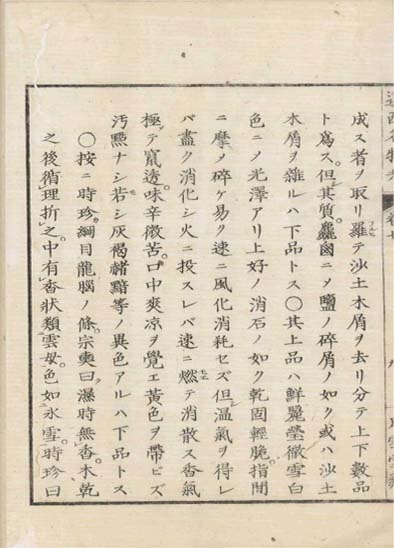 成ス者ヲ取リ羅フルヒテ沙土木屑ヲ去リ分テ上下數品
ト爲ス。但其質。麤鹵ニメ鹽ノ碎屑ノ如ク或ハ沙土
木屑ヲ雜ルハ下品トス〇其上品ハ鮮麗瑩徹雪白
色ニメ光澤アリ上好ノ消石ノ如ク乾固輕脆。指間
ニ摩メ碎ケ易ク速ニ風化消耗セズ但温氣ヲ得レ
バ盡ク消化シ火ニ投スレバ速ニ燃モエテ消散ス香氣
極テ竄透。味辛微苦。口中爽凉ヲ覺エ黃色ヲ帶ビズ
汚㸃ナシ若シ灰褐赭黯等ノ異色アルハ下品トス
〇按ニ時珍綱目龍腦ノ條。宗奭曰濕時無香。木乾
之後循理折之。中有香狀類雲母。色如氷雪。時珍曰